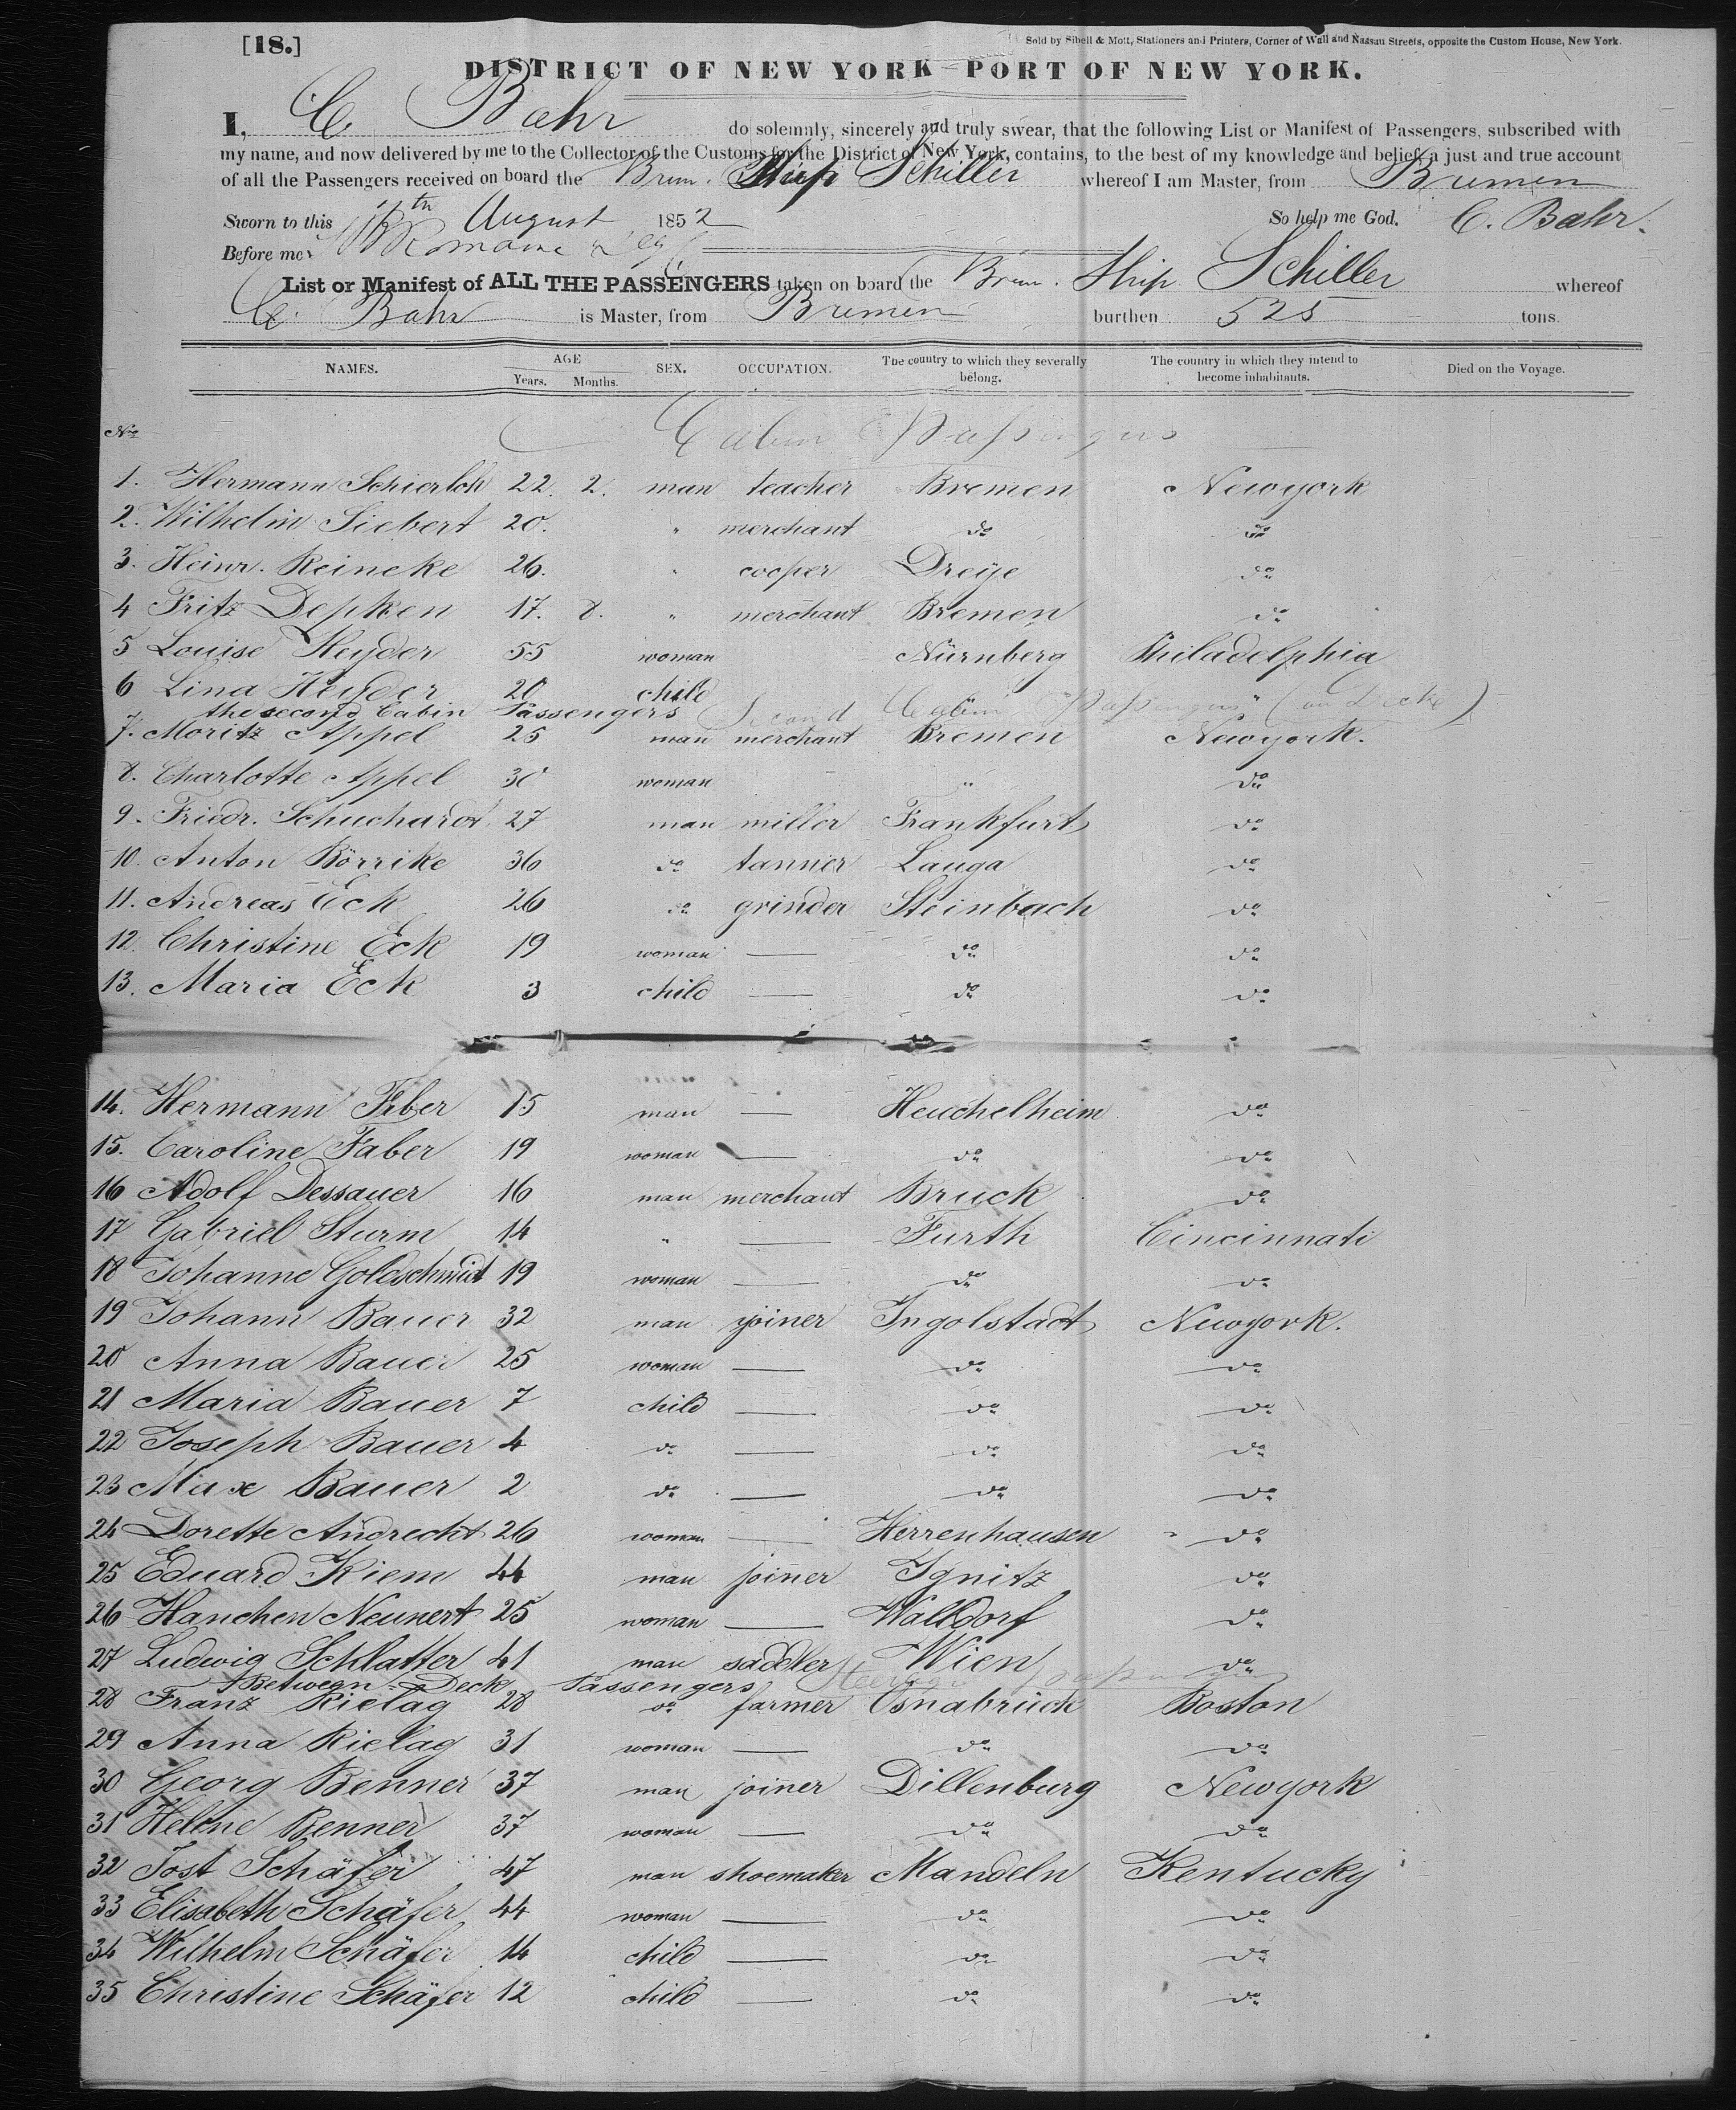 [18.]
Sold by Sibell & Mott, Stationers and Printers, Corner of Wall and Nassau Streets, opposite the Custom House, New York.
DISTRICT OF NEW YORK—PORT OF NEW YORK.
I, C Bahr do solemnly, sincerely and truly swear, that the following List or Manifest of Passengers, subscribed with
my name, and now delivered by me to the Collector of the Customs for the District of New York, contains, to the best of my knowledge and belief, a just and true account
of all the Passengers received on board the Brem. Ship Schiller whereof I am Master, from Bremen
Sworn to this th August 1852 So help me God. C. Bahr.
Before me
List or Manifest of ALL THE PASSENGERS taken on board the Brem. Ship Schiller whereof
C. Bahr is Master, from Bremen burthen 525 tons.
NAMES. AGE Years. Months. SEX. OCCUPATION. The country to which they severally belong. The country in which they intend to become inhabitants. Died on the Voyage.
No Cabin Passengers
1. Hermann Schierloh 22. 2. man teacher Bremen Newyork
2. Wilhelm Siebert 20. " merchant do do
3. Heinr. Reineke 26. " cooper Dreye do
4 Fritz Depken 17. 8. " merchant Bremen do
5 Louise Heyder 55 woman Nürnberg Philadelphia
6 Lina Heyder 20 child
the second Cabin Passengers Second Cabin Passengers (on Deck)
7. Moritz Appel 25 man merchant Bremen Newyork.
8. Charlotte Appel 30 woman " do
9. Friedr. Schuchardt 27 man miller Frankfurt do
10. Anton Börrike 36 do tanner Lauga do
11. Andreas Eck 26 do grinder Steinbach do
12. Christine Eck 19 woman — do do
13. Maria Eck 3 child — do do
14. Hermann Faber 15 man — Heuchelheim do
15. Caroline Faber 19 woman — do do
16 Adolf Dessauer 16 man merchant Bruck do
17 Gabriel Sturm 14 " — Furth Cincinnati
18 Johanne Goldschmidt 19 woman — do do
19 Johann Bauer 32 man joiner Ingolstadt Newyork.
20 Anna Bauer 25 woman — do do
21 Maria Bauer 7 child — do do
22 Joseph Bauer 4 do — do do
23 Max Bauer 2 do — do do
24 Dorette Andrecht 26 woman — Herrenhausen do
25 Eduard Kiem 44 man joiner Ignitz do
26 Hanchen Neunert 25 woman — Walldorf do
27 Ludwig Schlatter 41 man saddler Wien do
Between-Deck Passengers
28 Franz Rielag 28 do farmer Osnabrück Boston
29 Anna Rielag 31 woman — do do
30 Georg Benner 37 man joiner Dillenburg Newyork
31 Helene Benner 37 woman — do do
32 Jost Schäfer 47 man shoemaker Mandeln Kentucky
33 Elisabeth Schäfer 44 woman — do do
34 Wilhelm Schäfer 14 child — do do
35 Christine Schäfer 12 child — do do